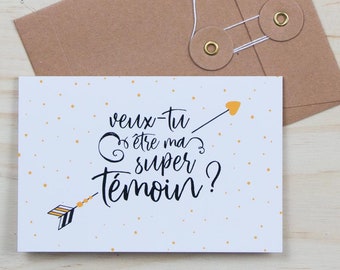 veux-tu
être ma
super
témoin ?